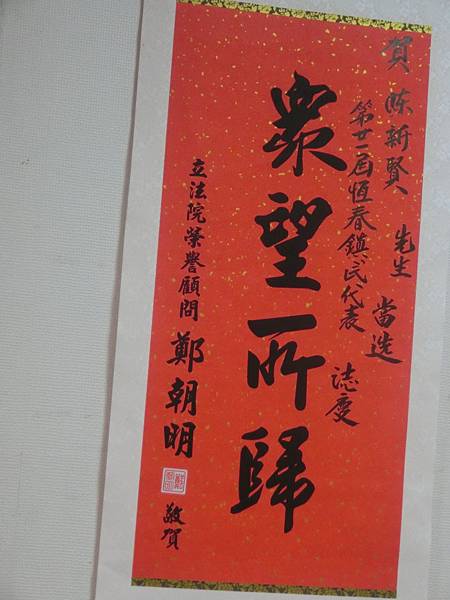 賀 陈新賢 先生 當选
第廿一屆恆春鎮民代表 誌慶
眾望所歸
立法院榮譽顧問 鄭朝明 敬賀